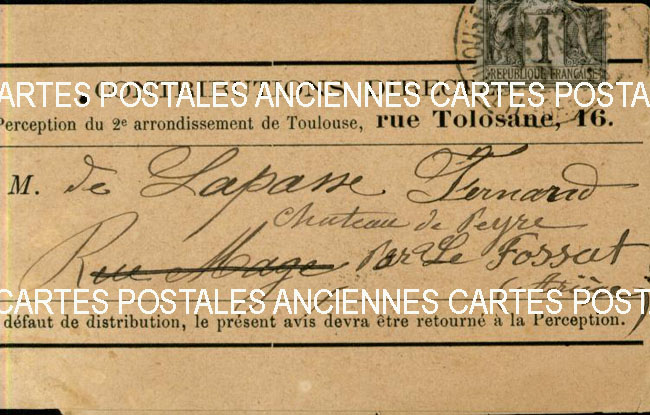 TOULOUSE
1
REPUBLIQUE FRANÇAISE
CONTRIBUTIONS DIRECTES
CARTES POSTALES ANCIENNES CARTES POSTA
Perception du 2e arrondissement de Toulouse, rue Tolosane, 16.
M. de Lapasse Fernand
Chateau de Peyre
Rue Mage Par Le Fossat
Ariège
CARTES POSTALES ANCIENNES CARTES POSTA
défaut de distribution, le présent avis devra être retourné à la Perception.